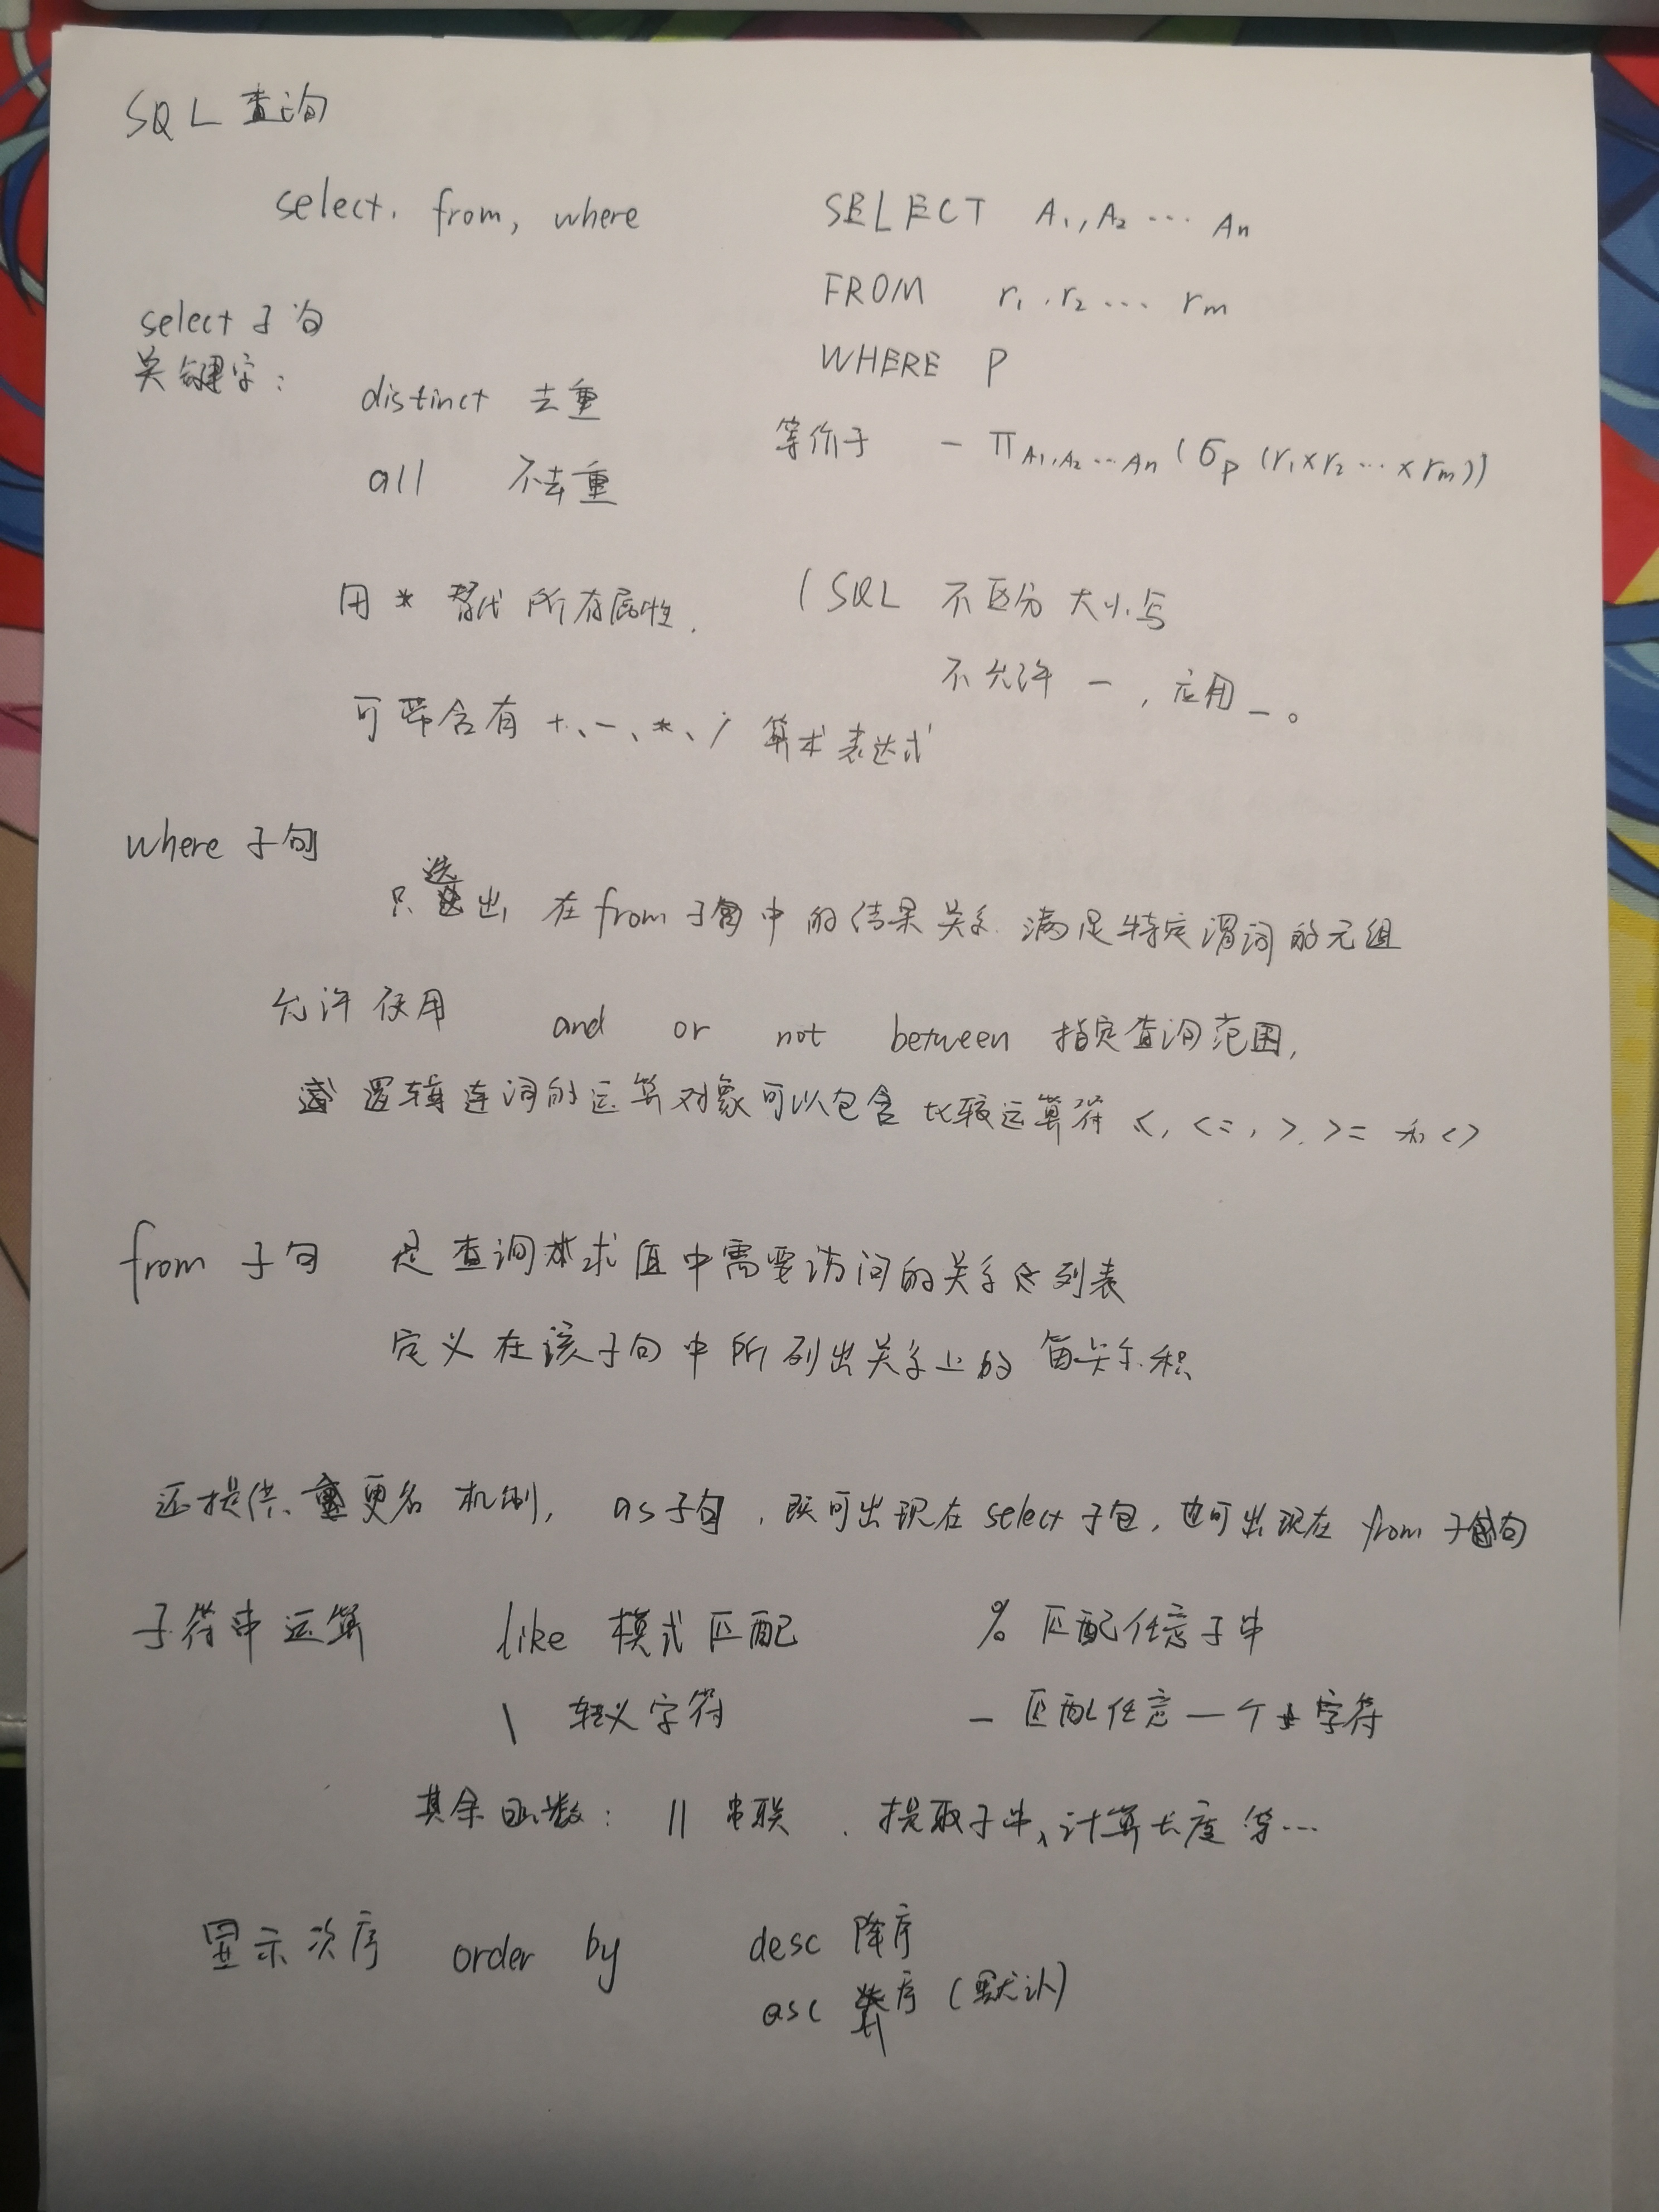 SQL 查询
select, from, where
SELECT A₁, A₂ ··· An
FROM r₁, r₂ ··· rm
WHERE P
等价于 - π A₁,A₂...An (σp (r₁×r₂ ··· × rm))
select 子句
关键字:
distinct 去重
all 不去重
用 * 替代所有属性.
(SQL 不区分大小写
不允许 - , 应用 _ 。
可带含有 +、-、*、/ 算术表达式
where 子句
只选出 在 from 子句中的结果关系 满足特定谓词的元组
允许使用 and or not between 指定查询范围,
逻辑连词的运算对象可以包含比较运算符 <, <=, >, >= 和 <>
from 子句 是查询求值中需要访问的关系列表
定义在该子句中所列出关系上的笛卡尔积
还提供、更名机制, as子句, 既可出现在 select 子句, 也可出现在 from 子句
子符串运算 like 模式匹配 % 匹配任意子串
\ 转义字符 _ 匹配任意一个字符
其余函数: || 串联 . 提取子串、计算长度等...
显示次序 order by desc 降序
asc 序 (默认)